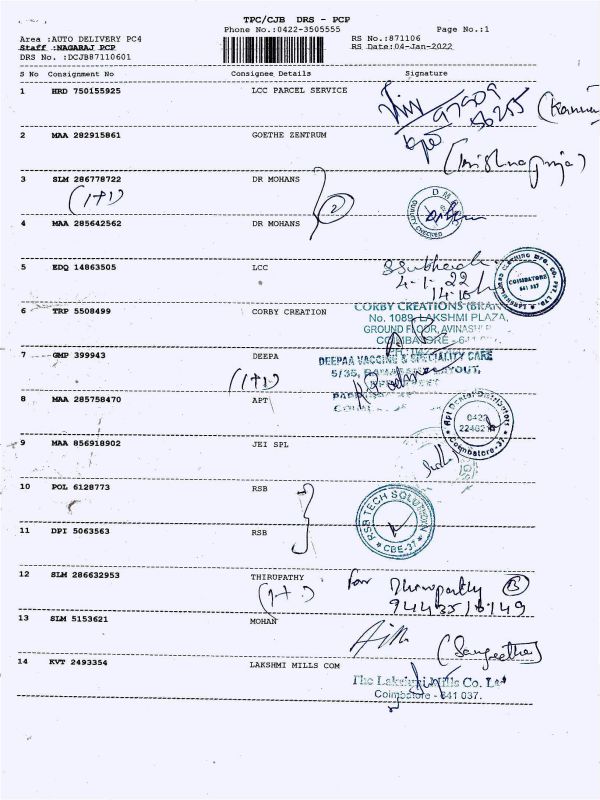 TPC/CJB DRS - PCP
Phone No.:0422-3505555 Page No.:1
Area :AUTO DELIVERY PC4 RS No.:871106
Staff :NAGARAJ PCP RS Date:04-Jan-2022
DRS No. :DCJB87110601
S No Consignment No Consignee Details Signature
1 HRD 750155925 LCC PARCEL SERVICE
2 MAA 282915861 GOETHE ZENTRUM
3 SLM 286778722 DR MOHANS
(1+1) 2
4 MAA 285642562 DR MOHANS
QUALITY CHECKED
5 EDQ 14863505 LCC
4-1-22
COIMBATORE
641 037
6 TRP 5508499 CORBY CREATION
CORBY CREATIONS
No. 1089, LAKSHMI PLAZA,
GROUND FLOOR, AVINASHI
COIMBATORE - 641
7 GMP 399943 DEEPA
(1+1)
DEEPAA VACCINE & SPECIALITY CARE
5/35,
8 MAA 285758470 APT
Api Dental Distributors
0422
Coimbatore-37
9 MAA 856918902 JEI SPL
10 POL 6128773 RSB
RSB TECH SOLUTION
CBE-37
11 DPI 5063563 RSB
12 SLM 286632953 THIRUPATHY
for Thirupathy
13 SLM 5153621 MOHAN
(Sangeetha)
14 KVT 2493354 LAKSHMI MILLS COM
The Lakshmi Mills Co. Ltd
Coimbatore - 641 037.